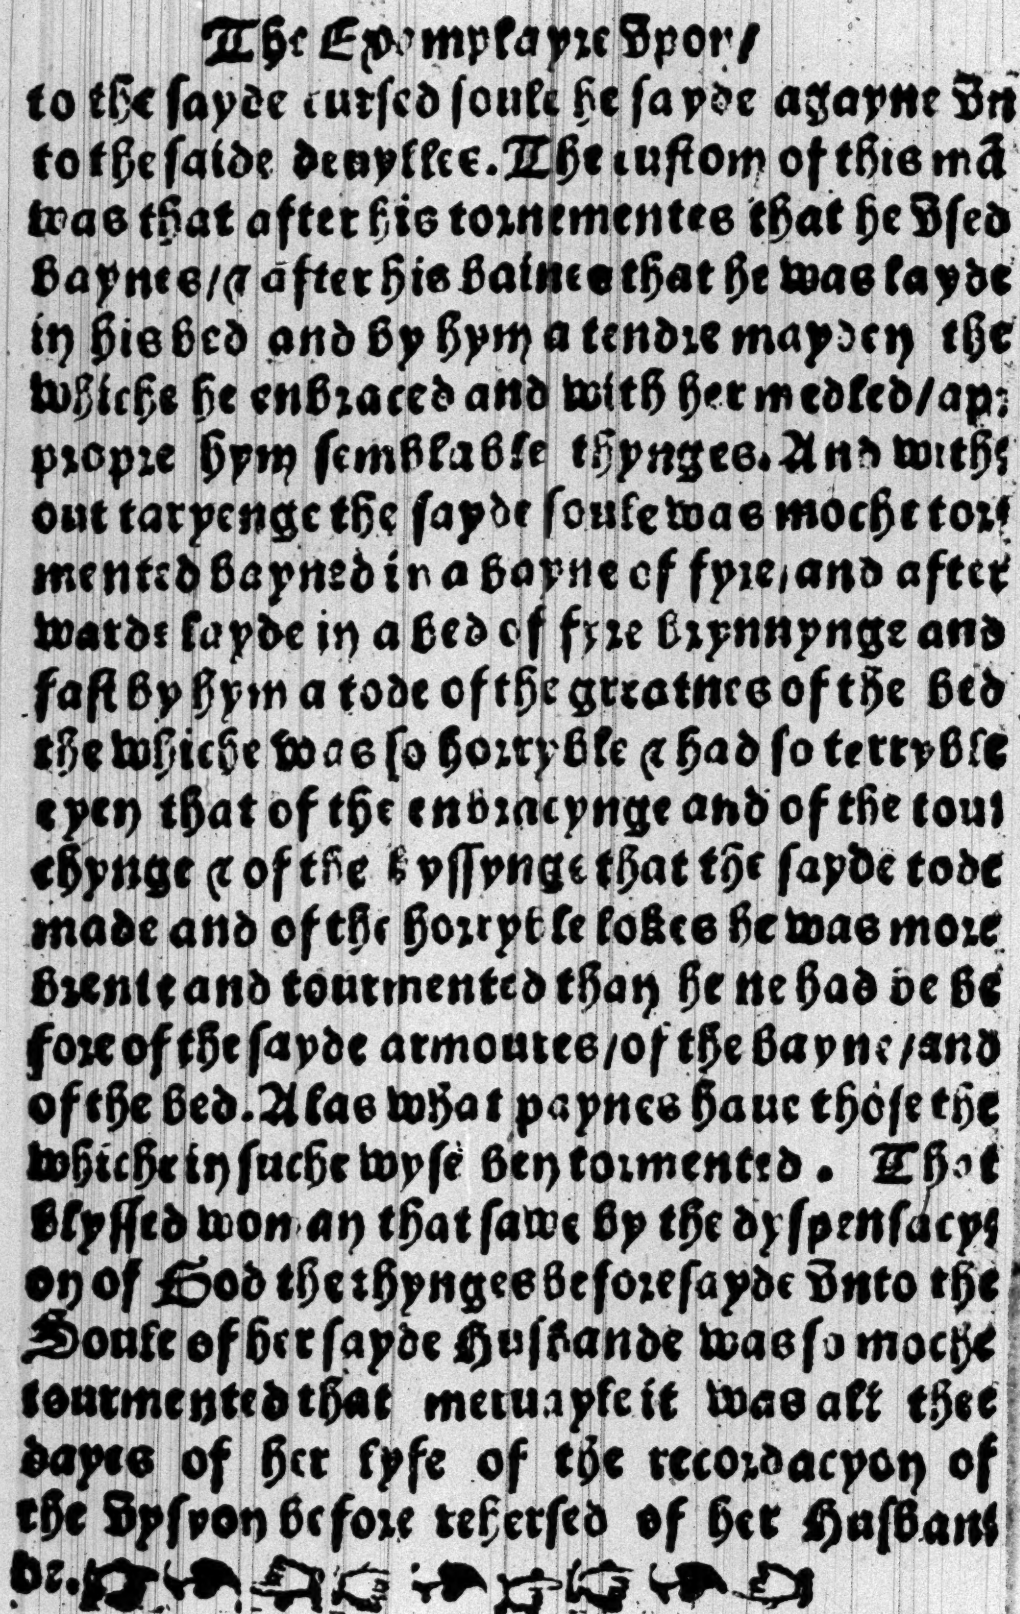 The Exemplayre Vpon/
to the sayde cursed soule he sayde agayne vn
to the saide deuylles. The custom of this mā
was that after his tornementes that he vsed
baynes/⁊ after his baines that he was layde
in his bed and by hym a tendre mayden the
whiche he enbraced and with her medled/ap⸗
propre hym semblable thynges. And with⸗
out taryenge the sayde soule was moche tor⸗
mented bayned in a bayne of fyre/and after
warde layde in a bed of fyre brynnynge and
fast by hym a tode of the greatnes of the bed
the whiche was so horryble ⁊ had so terryble
eyen that of the enbracynge and of the tou⸗
chynge ⁊ of the kyssynge that the sayde tode
made and of the horryble lokes he was more
brente and tourmented than he ne had be be
fore of the sayde armoures/of the bayne/and
of the bed. Alas what paynes haue those the
whiche in suche wyse ben tormented. That
blyssed woman that sawe by the dyspensacy⸗
on of God the thynges beforesayde vnto the
Soule of her sayde Husbande was so moche
tourmented that meruayle it was all thee
dayes of her lyfe of the recordacyon of
the vysyon before rehersed of her Husban⸗
de.